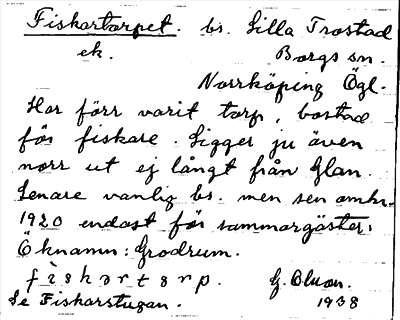 Fiskartorpet. bs. Lilla Trostad
ek. Borgs sn.
Norrköping Ögl.
Har förr varit torp, bostad
för fiskare. Ligger ju även
norr ut ej långt från Glan.
Senare vanlig bs. men sen omkr.
1920 endast för sommargäster.
Öknamn: Grodrum.
fiskartorp. G.
Se Fiskarstugan. 1938